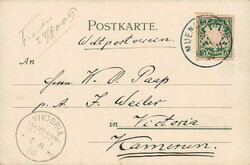 POSTKARTE.
Weltpostverein.
An
Herrn W. O. Paap
p. A. F. Weiler
in Victoria
Kamerun.
VIKTORIA